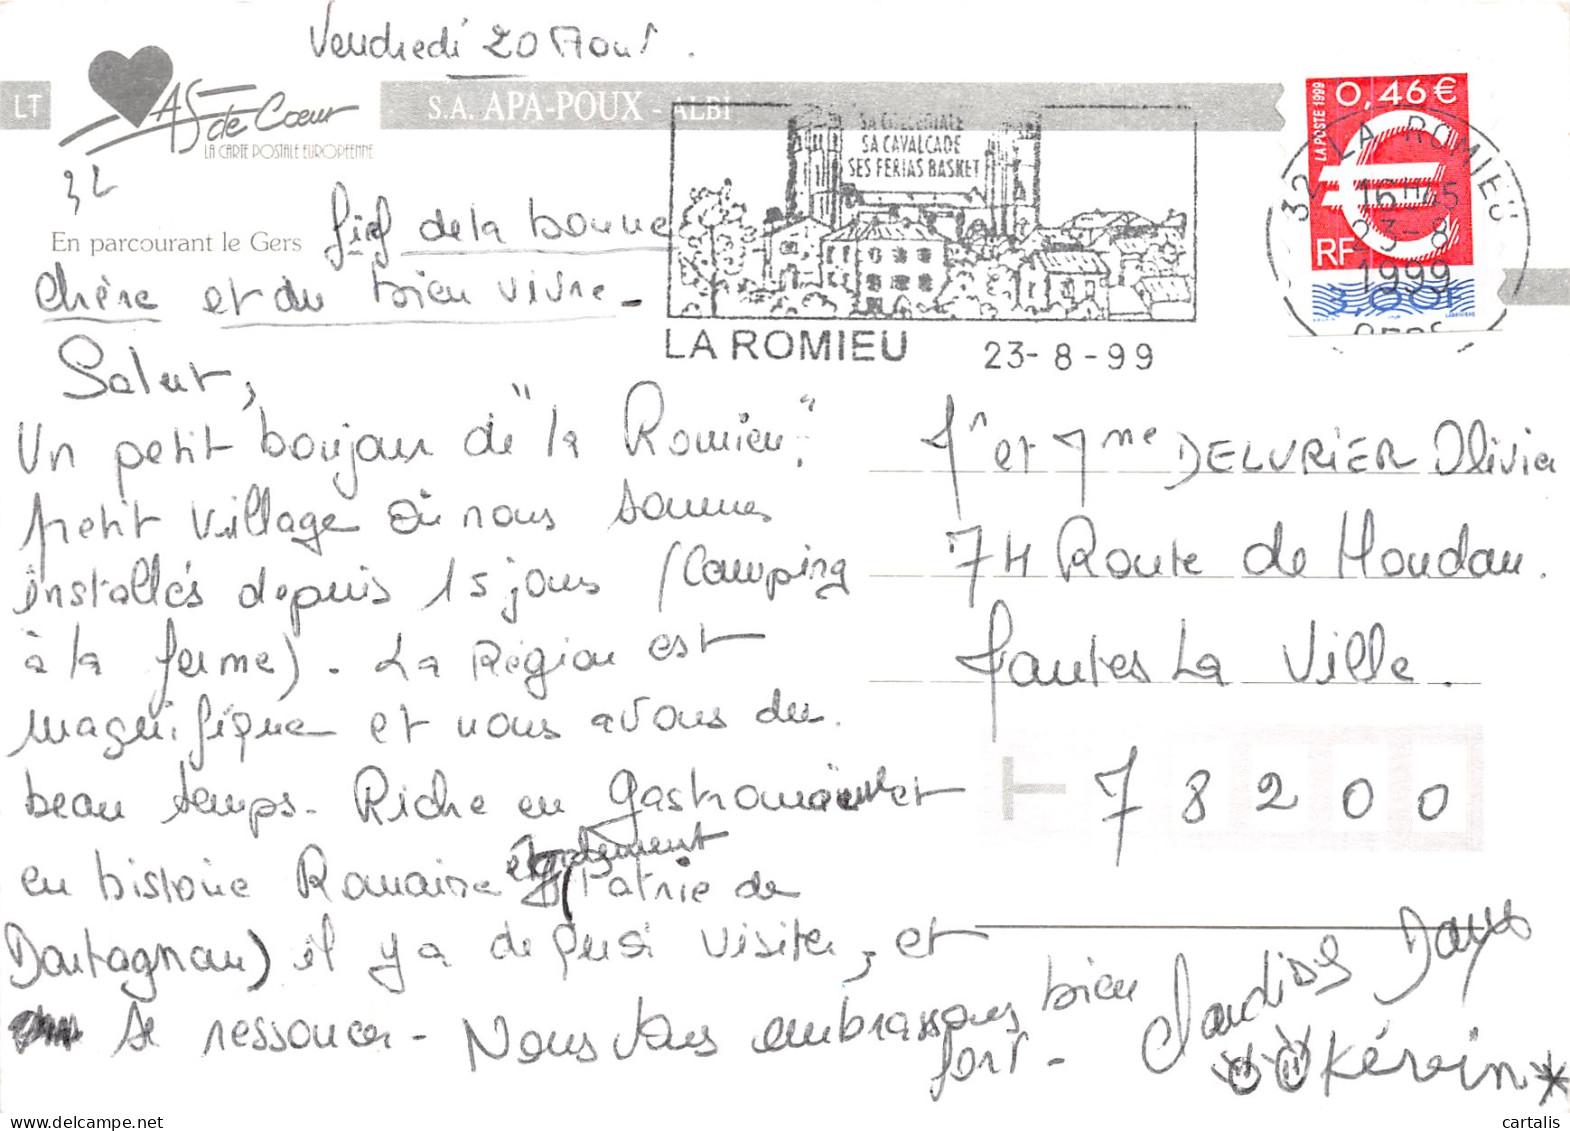 Vendredi 20 Aout.
LT
AS de Cœur
LA CARTE POSTALE EUROPEENNE
S.A. APA-POUX - ALBI
32
En parcourant le Gers fief de la bonne
chère et du bien vivre.
Salut,
Un petit bonjour de "la Romieu",
petit village où nous sommes
installés depuis 15 jours (Camping
à la ferme). La Région est
magnifique et nous avons du
beau temps. Riche en gastronomie et
en histoire Romaine également (Patrie de
Dartagnan) il y a de quoi visiter, et
se ressourcer. Nous vous embrassons bien
fort.
SA COLLEGIALE
SA CAVALCADE
SES FERIAS BASKET
LA ROMIEU 23-8-99
LA POSTE 1999
0,46 €
RF
3,00F
32 LA ROMIEU
16H45
23-8
1999
GERS
Mr et Mme DELVRIER Olivier
74 Route de Houdan.
Mantes La Ville.
78200
Kévin
cartalis